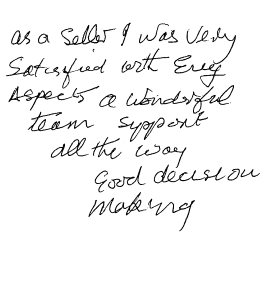 as a seller I was very
Satisfied with Every
Aspects a wonderful
team support
all the way
Good decision
making